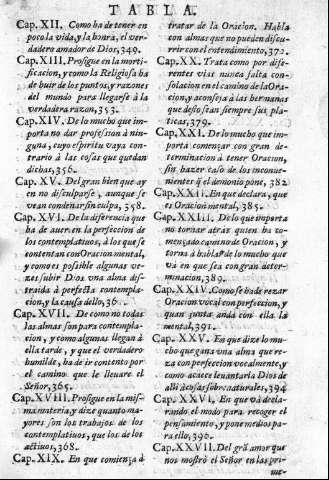 TABLA.
Cap. XII. Como ha de tener en
poco la vida, y la honra, el ver-
dadero amador de Dios, 349.
Cap. XIII. Prosigue en la morti-
ficacion, y como la Religiosa ha
de huir de los puntos, y razones
del mundo para llegarse à la
verdadera razon, 353.
Cap. XIV. De lo mucho que im-
porta no dar profession à nin-
guna, cuyo espiritu vaya con-
trario à las cosas que quedan
dichas, 356.
Cap. XV. Del gran bien que ay
en no disculparse, aunque se
vean condenar sin culpa, 358.
Cap. XVI. De la diferencia que
ha de auer en la perfeccion de
los contemplatiuos, à los que se
contentan con Oracion mental,
y como es possible algunas ve-
zes subir Dios vna alma dis-
traida à perfecta contempla-
cion, y la causa dello, 36
Cap. XVII. De como no todas
las almas son para contempla-
cion, y como algunas llegan à
ella tarde, y que el verdadero
humilde, ha de ir contento por
el camino que le lleuare el
Señor, 365.
Cap. XVIII. Prosigue en la mis-
ma materia, y dize quanto ma-
yores son los trabajos de los
contemplatiuos, que los de los
actiuos, 368.
Cap. XIX. En que comiença à
tratar de la Oracion. Habla
con almas que no pueden discu-
rrir con el entendimiento, 372.
Cap. XX. Trata como por dife-
rentes vias nunca falta con-
solacion en el camino de la Ora-
cion, y aconseja à las hermanas
que desto sean siempre sus pla-
ticas, 379.
Cap. XXI. De lo mucho que im-
porta començar con gran de-
terminacion à tener Oracion,
sin hazer caso de los inconue-
nientes q̃ el demonio pone, 382
Cap. XXII. En que declara, que
es Oracion mental, 385.
Cap. XXIII. De lo que importa
no tornar atràs quien ha co-
mençado camino de Oracion, y
torna à hablar de lo mucho que
và en que sea con gran deter-
minacion, 389.
Cap. XXIV. Como se ha de rezar
Oracion vocal con perfeccion, y
quan junta anda con ella la
mental, 391.
Cap. XXV. En que dize lo mu-
cho que gana vna alma que re-
za con perfeccion vocalmente, y
como acaece leuantarla Dios de
alli à cosas sobrenaturales, 394
Cap. XXVI. En que và decla-
rando el modo para recoger el
pensamiento, y pone medios pa-
ra ello, 396.
Cap. XXVII. Del grã amor que
nos mostrò el Señor en las pri-
me-